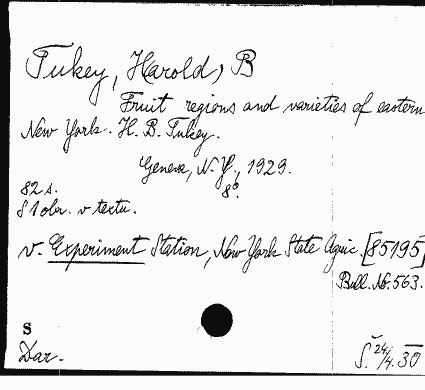 Tukey, Harold, B
Fruit regions and varieties of eastern
New York. H. B. Tukey.
Geneva, N.Y., 1929.
82 s. 8°.
81 obr. v textu.
v. Experiment Station, New York State Agric. [85195]
Bull. No. 563.
S
Dar. Š. 24/4.30